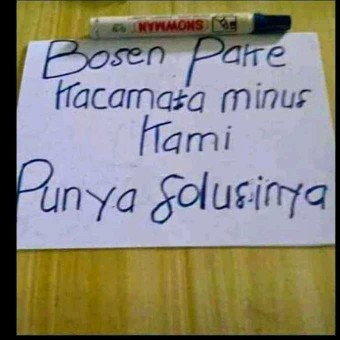 SNOWMAN
Bosen Pake
Kacamata minus
Kami
Punya Solusinya